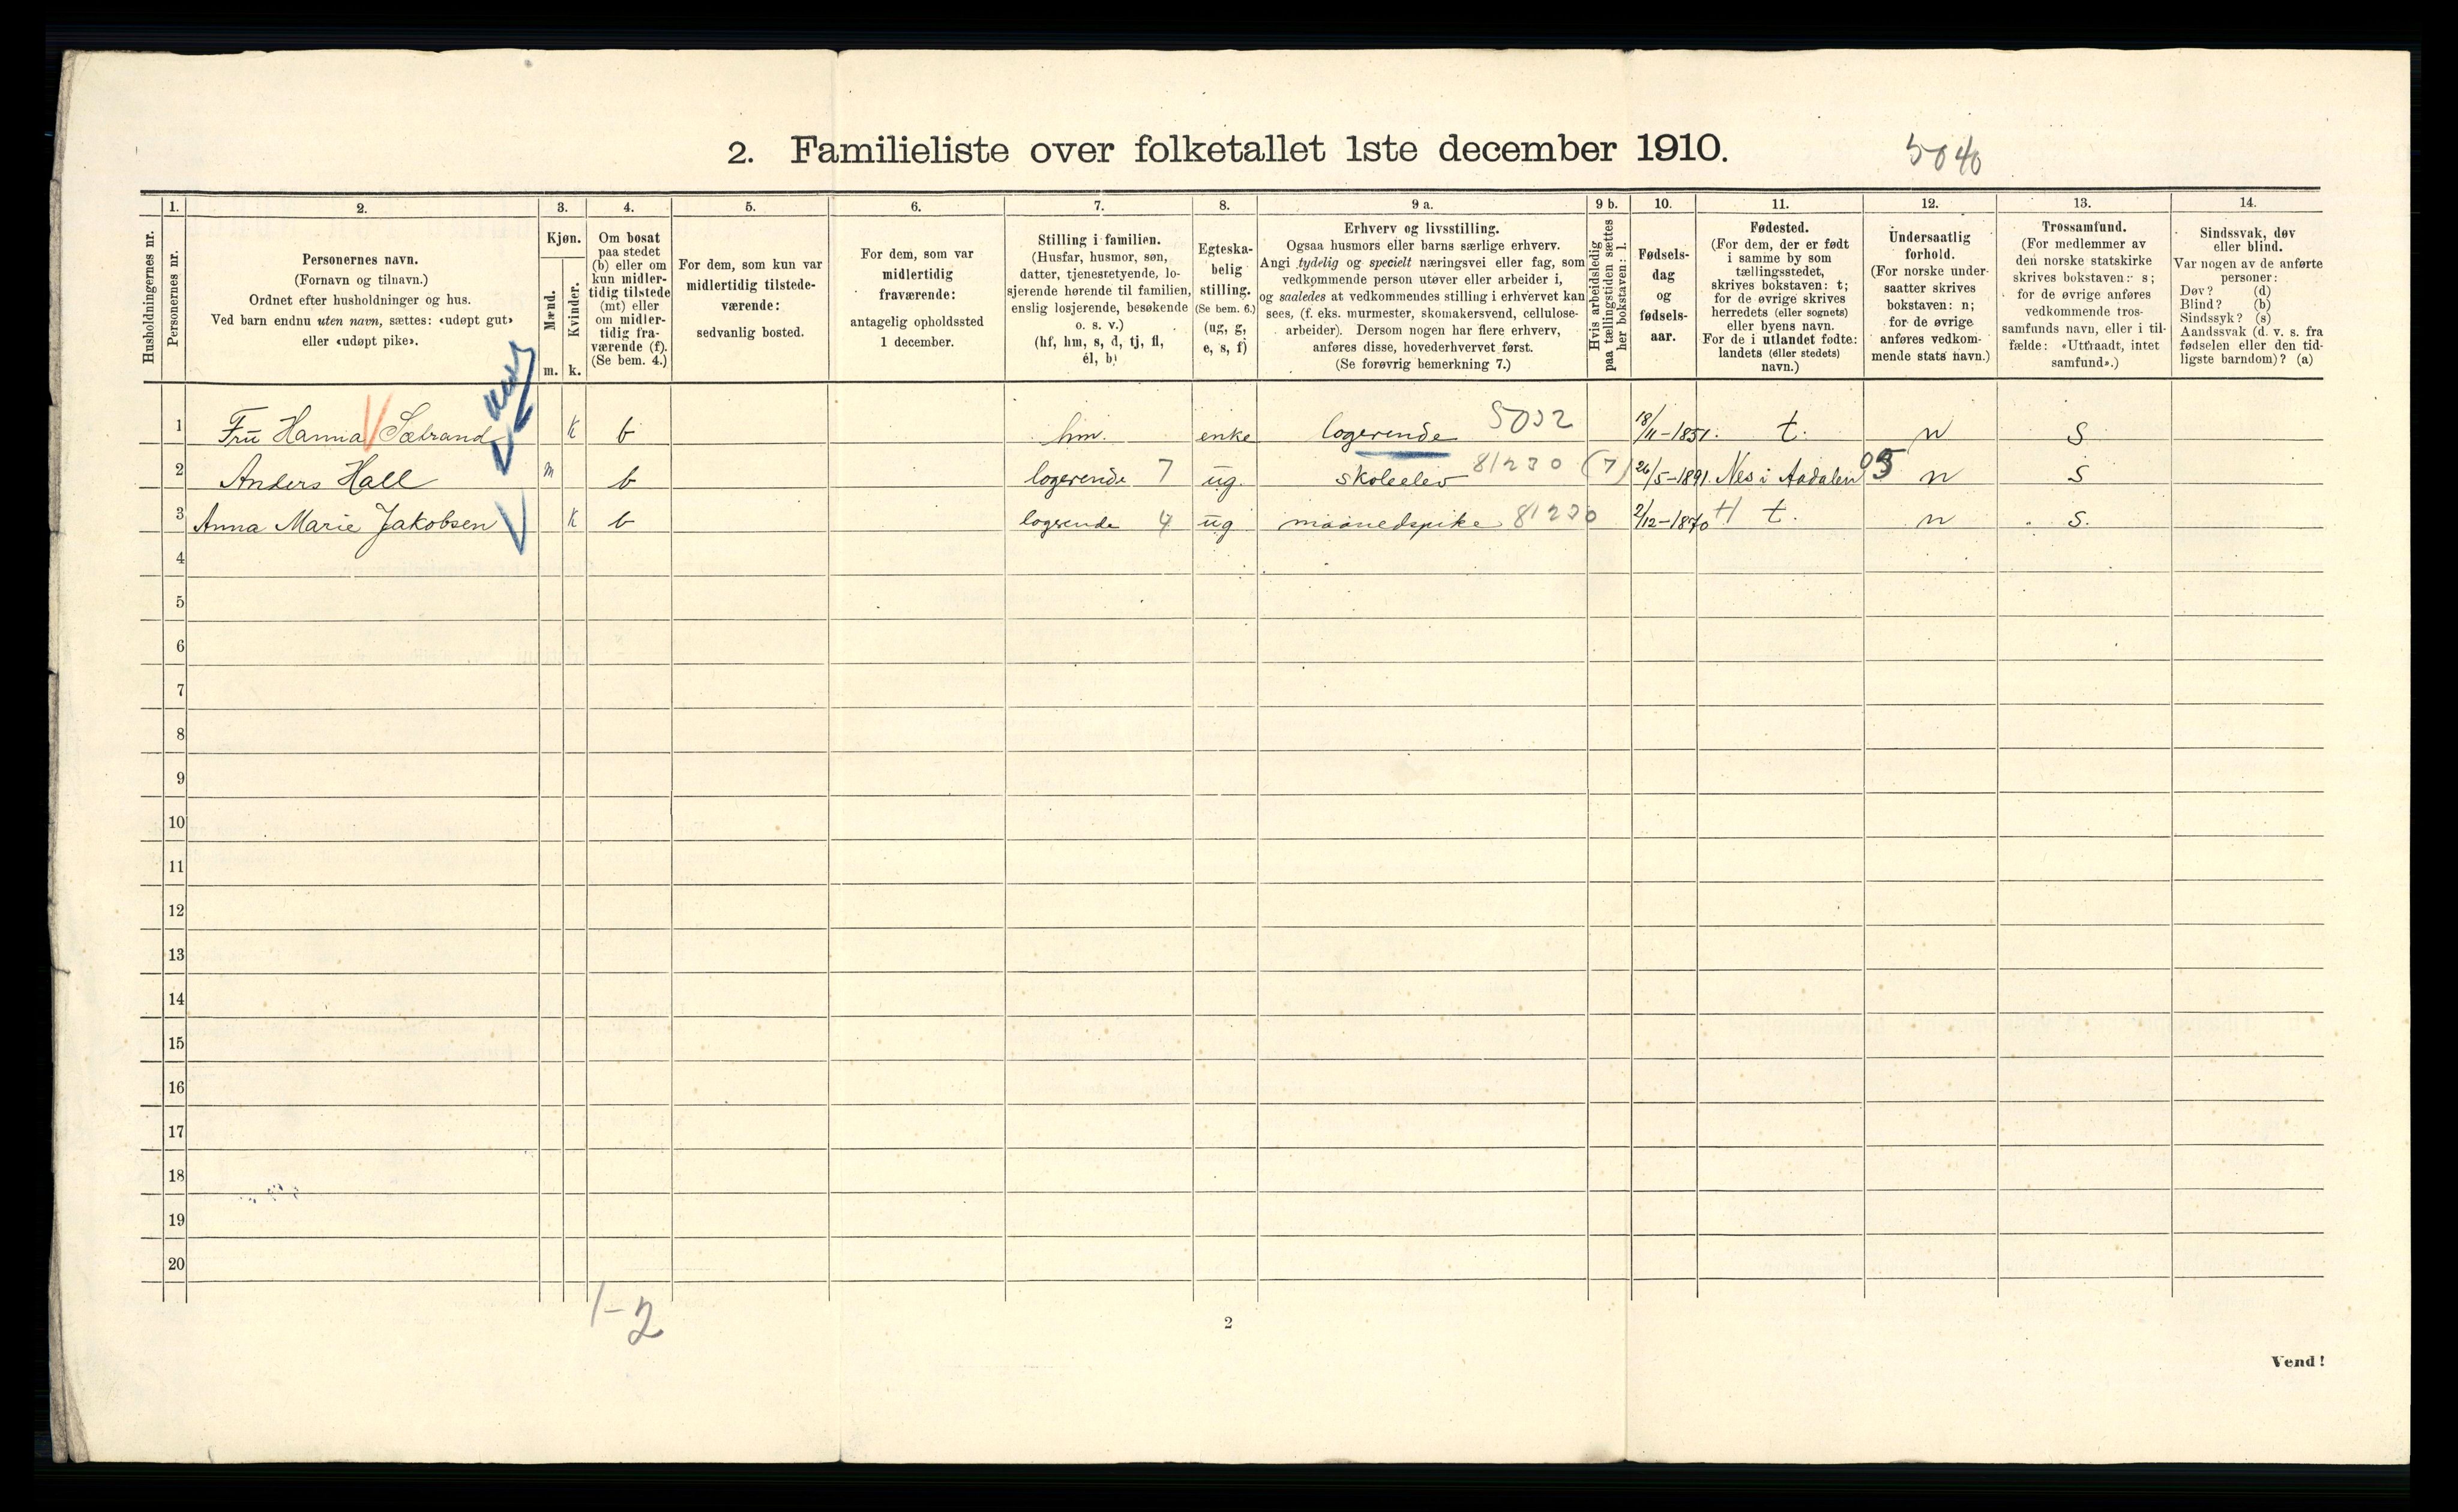 2. Familieliste over folketallet 1ste december 1910.
5040
Husholdningernes nr.
1.
Personernes nr.
2.
Personernes navn.
(Fornavn og tilnavn.)
Ordnet efter husholdninger og hus.
Ved barn endnu uten navn, sættes: «udøpt gut»
eller «udøpt pike».
3.
Kjøn.
Mænd.
Kvinder.
m. k.
4.
Om bosat
paa stedet
(b) eller om
kun midler-
tidig tilstede
(mt) eller
om midler-
tidig fra-
værende (f).
(Se bem. 4.)
5.
For dem, som kun var
midlertidig tilstede-
værende:
sedvanlig bosted.
6.
For dem, som var
midlertidig
fraværende:
antagelig opholdssted
1 december.
7.
Stilling i familien.
(Husfar, husmor, søn,
datter, tjenestetyende, lo-
sjerende hørende til familien,
enslig losjerende, besøkende
o. s. v.)
(hf, hm, s, d, tj, fl,
el, b)
8.
Egteska-
belig
stilling.
(Se bem. 6.)
(ug, g,
e, s, f)
9 a.
Erhverv og livsstilling.
Ogsaa husmors eller barns særlige erhverv.
Angi tydelig og specielt næringsvei eller fag, som
vedkommende person utøver eller arbeider i,
og saaledes at vedkommendes stilling i erhvervet kan
sees, (f. eks. murmester, skomakersvend, cellulose-
arbeider). Dersom nogen har flere erhverv,
anføres disse, hovederhvervet først.
(Se forøvrig bemerkning 7.)
9 b.
Hvis arbeidsledig
paa tællingstiden sættes
her bokstaven: l.
10.
Fødsels-
dag
og
fødsels-
aar.
11.
Fødested.
(For dem, der er født
i samme by som
tællingsstedet,
skrives bokstaven: t;
for de øvrige skrives
herredets (eller sognets)
eller byens navn.
For de i utlandet fødte:
landets (eller stedets)
navn.)
12.
Undersaatlig
forhold.
(For norske under-
saatter skrives
bokstaven: n;
for de øvrige
anføres vedkom-
mende stats navn.)
13.
Trossamfund.
(For medlemmer av
den norske statskirke
skrives bokstaven: s;
for de øvrige anføres
vedkommende tros-
samfunds navn, eller i til-
fælde: «Uttraadt, intet
samfund».)
14.
Sindssvak, døv
eller blind.
Var nogen av de anførte
personer:
Døv? (d)
Blind? (b)
Sindssyk? (s)
Aandssvak (d. v. s. fra
fødselen eller den tid-
ligste barndom)? (a)
1 Fru Hanna Sæbrand k b hm. enke logerende 5032 18/11-1851. t. n s
2 Anders Hall m b logerende 7 ug. skoleelev 81230 (7) 26/5-1891. Nes i Aadalen 05 n s
3 Anna Marie Jakobsen k b logrende 4 ug maanedspike 81230 2/12-1870 t. n s.
4
5
6
7
8
9
10
11
12
13
14
15
16
17
18
19
20
1-2
2
Vend!